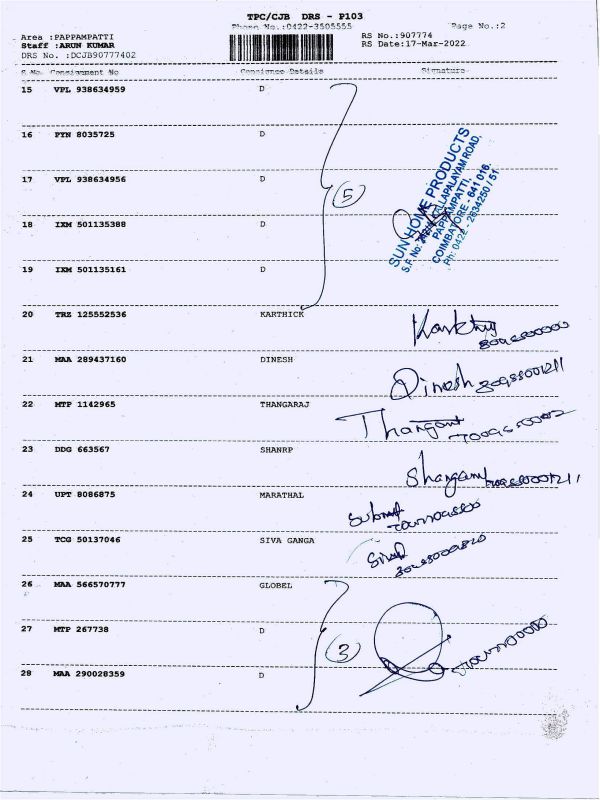 TPC/CJB DRS - P103
Phone No.:0422-3505555
Page No.:2
Area :PAPPAMPATTI
RS No.:907774
Staff :ARUN KUMAR
RS Date:17-Mar-2022
DRS No. :DCJB90777402
S.No. Consignment No Consignee Details Signature
15 VPL 938634959 D
16 PYN 8035725 D
17 VPL 938634956 D
5
18 IXM 501135388 D
19 IXM 501135161 D
SUN HOME PRODUCTS
PAPPAMPATTI,
COIMBATORE - 641 016.
Ph: 0422 - 2634250 / 51
20 TRZ 125552536 KARTHICK
21 MAA 289437160 DINESH
Dinesh
22 MTP 1142965 THANGARAJ
23 DDG 663567 SHANRP
24 UPT 8086875 MARATHAL
25 TCG 50137046 SIVA GANGA
26 MAA 566570777 GLOBEL
27 MTP 267738 D
3
28 MAA 290028359 D